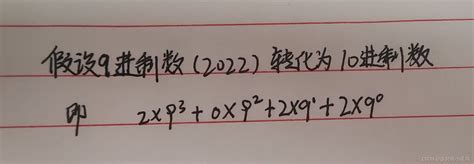 假设9进制数(2022)转化为10进制数
即 2×9³+0×9²+2×9¹+2×9⁰